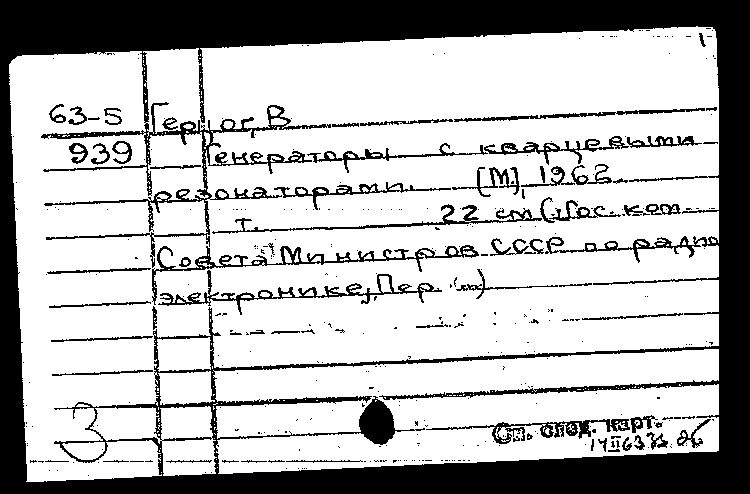 63-5 Герцог, В
939 Генераторы с кварцевыми
резонаторами. [М], 1962.
т. 22 см (Гос. ком.
Совета Министров СССР по радио
электронике, Пер.
З
См. след. карт.